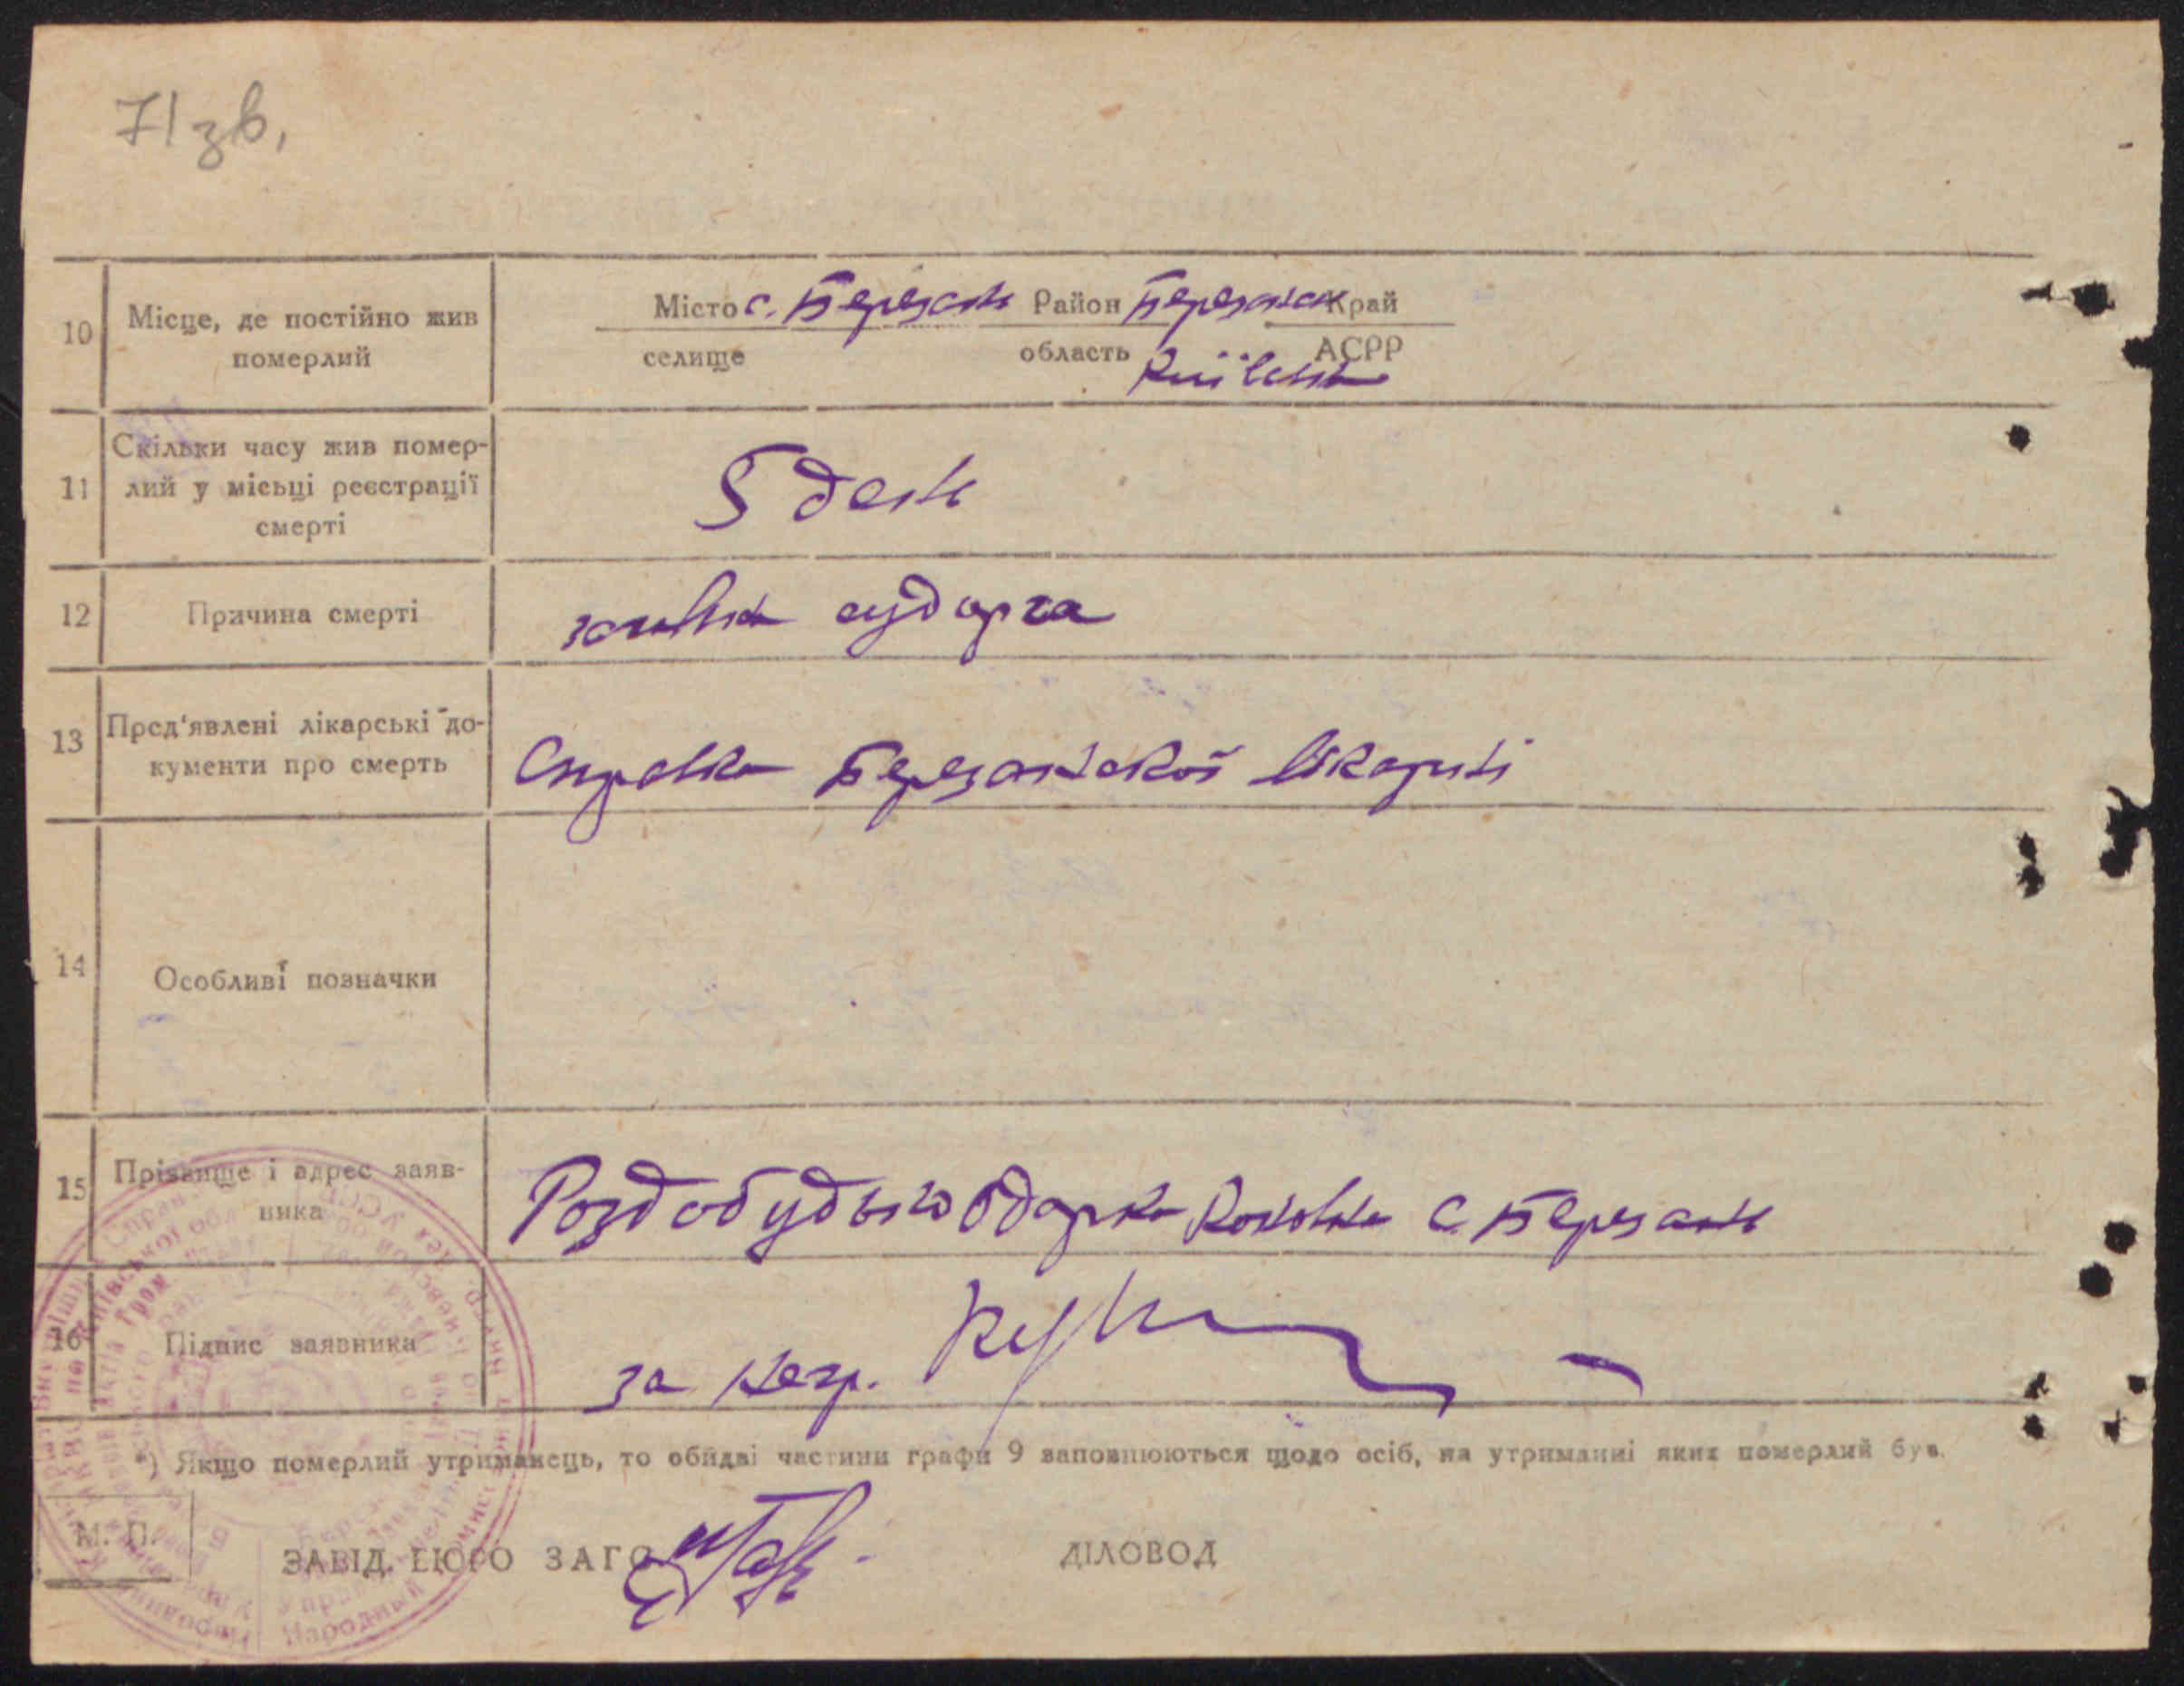 71 зв.
10 Місце, де постійно жив померлий
Місто с. Березань Район Березанськ Край
селище область Київська АСРР
11 Скільки часу жив помер-
лий у місьці реєстрації
смерті
5 день
12 Причина смерті
сударга
13 Пред'явлені лікарські до-
кументи про смерть
Справка Березанської лікарні
14 Особливі позначки
15 Прізвище і адрес заяв-
ника
Роздобудько Одарка с. Березань
16 Підпис заявника
за негр.
*) Якщо померлий утриманець, то обидві частини графи 9 заповнюються щодо осіб, на утриманні яких померлий був.
М. П.
ЗАВІД. БЮРО ЗАГС ДІЛОВОД